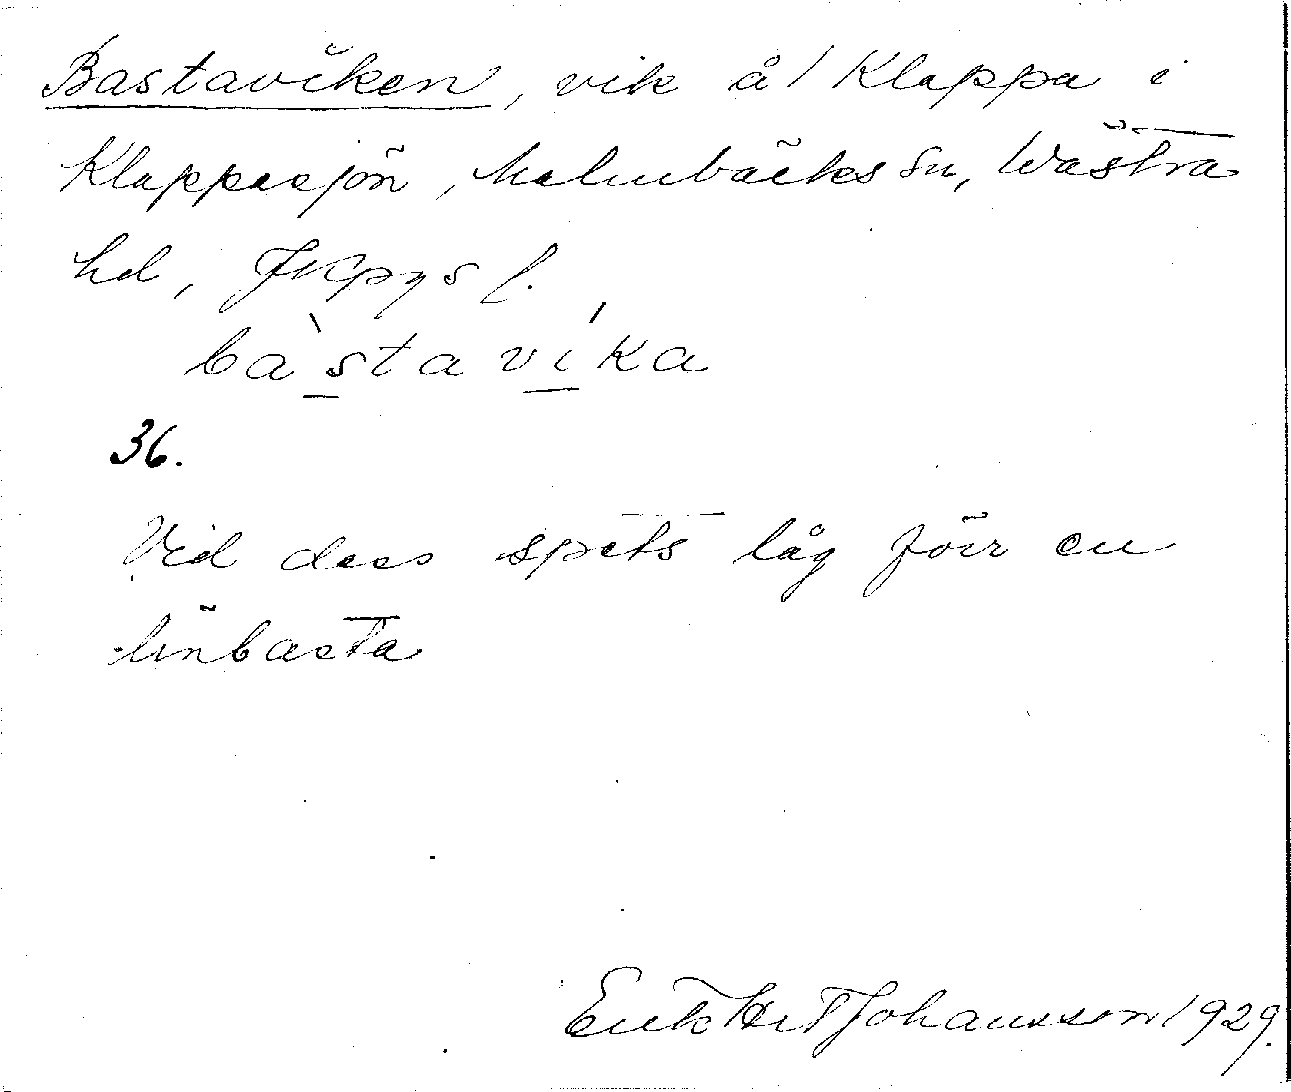 Bastaviken, vik å 1 Klappa i
Klappasjön, Malmbäcks sn, Västra
hd, Jkpgs l.
bàstavíka
36.
Vid dess spets låg förr en
linbasta
Erik Johansson 1929.